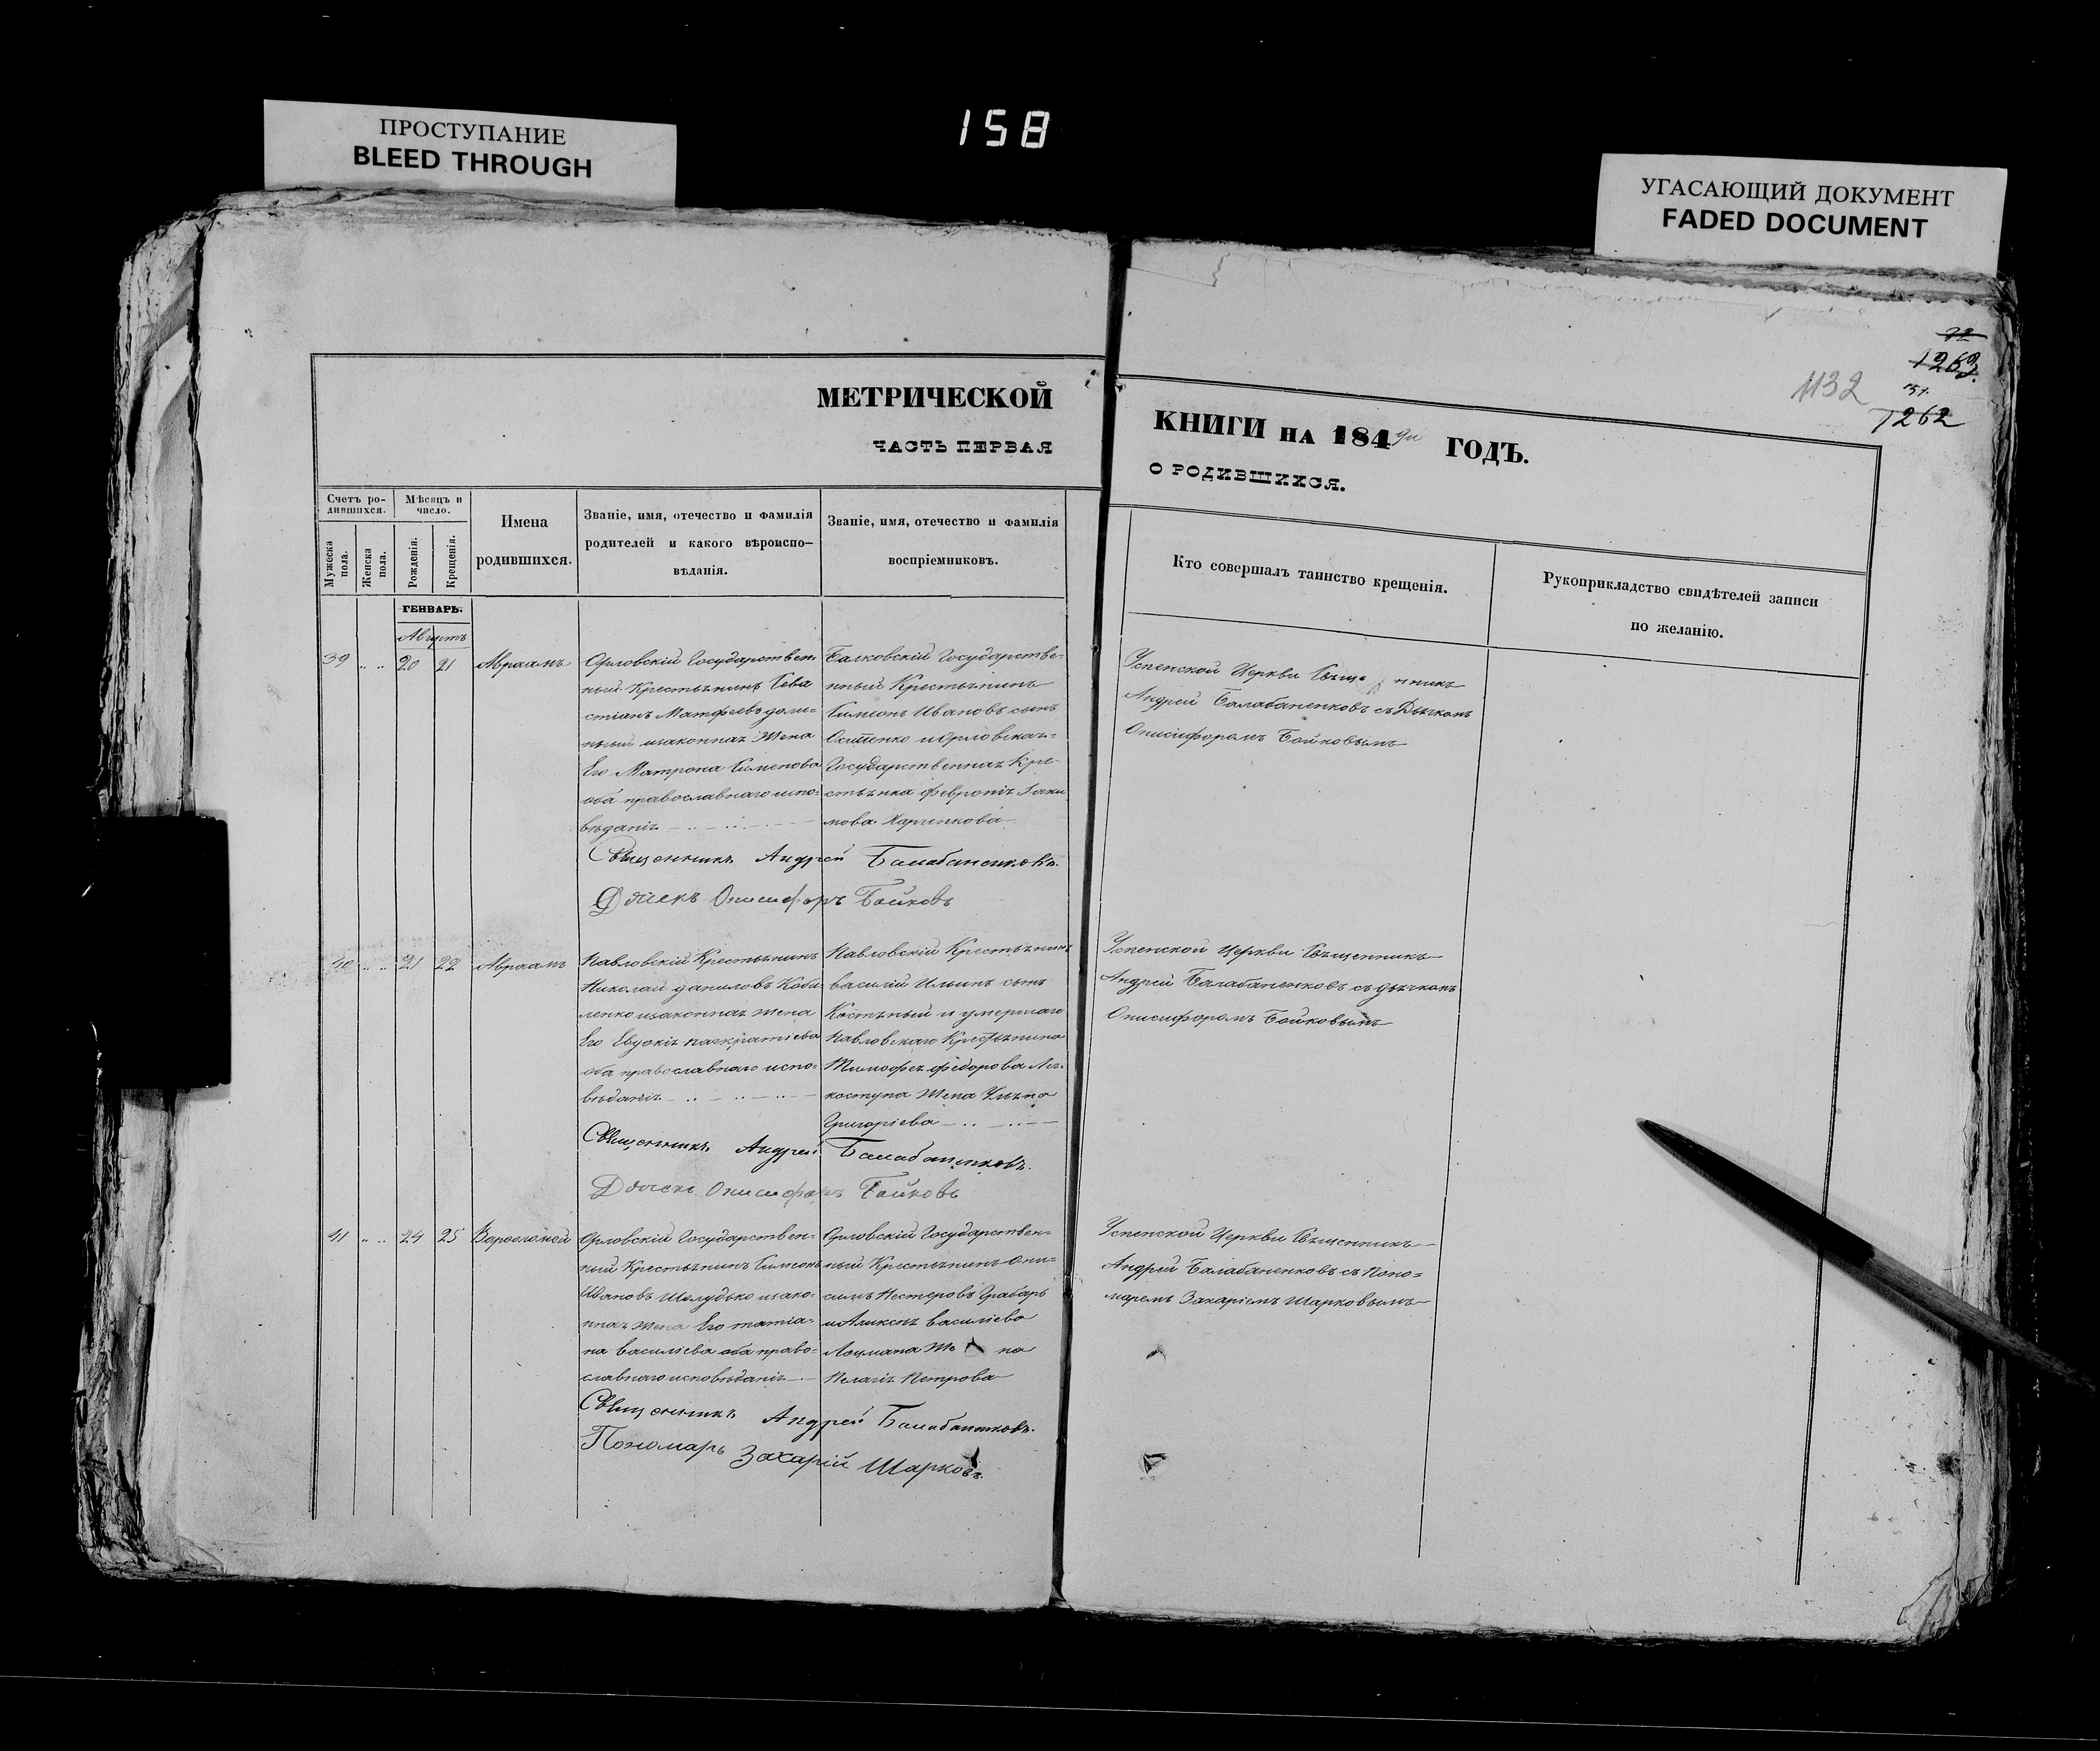 158
ПРОСТУПАНИЕ
BLEED THROUGH
УГАСАЮЩИЙ ДОКУМЕНТ
FADED DOCUMENT
72
1263
1132
151.
1262
МЕТРИЧЕСКОЙ
ЧАСТЬ ПЕРВАЯ
КНИГИ НА 184 ГОДЪ.
О РОДИВШИХСЯ.
Счетъ ро-
дившихся.
Мужеска
пола.
Женска
пола.
Мѣсяцъ и
число.
Рожденія.
Крещенія.
Имена
родившихся.
Званіе, имя, отечество и фамилія
родителей и какого вѣроиспо-
вѣданія.
Званіе, имя, отечество и фамилія
воспріемниковъ.
Кто совершалъ таинство крещенія.
Рукоприкладство свидѣтелей записи
по желанію.
ГЕНВАРЬ.
Августъ
39 20 21 Авраамъ
Орловскій Государствен
ный Крестьянинъ Сева
стіанъ Матфеевъ
ный изаконная Жена
Его Матрона Сименова
оба православнаго испо=
вѣданія
Балковскій Государстве=
нный Крестьянинъ
Симіонъ Ивановъ сынъ
Осипенко иОрловская=
Государственная Кре-
стьянка Февронія Іоаки
мова Харченкова
Успенской Церкви Священникъ
Андрей Балабаненковъ съ Дьячкомъ
Онисифоромъ Бойковымъ
Священникъ Андрей Балабаненковъ.
Дьячекъ Онисифоръ Бойковъ
40 21 22 Авраамъ
Павловскій Крестьянинъ
Николай даниловъ Коби
ленко изаконная жена
Его Евдокія панкратіева
оба православнаго испо=
вѣданія
Павловскій Крестьянинъ
василій Ильинъ сынъ
Костяный и умершаго
Павловскаго Крестьянина
Тимофея федорова
коступа Жена Уляна
Григоріева
Успенской Церкви Священникъ
Андрей Балабаненковъ съ дьячкомъ
Онисифоромъ Бойковымъ
Священникъ Андрей Балабаненковъ.
Дьячекъ Онисифоръ Бойковъ
41 24 25 Варфоломей
Орловскій Государствен=
ный Крестьянинъ Симіонъ
Ивановъ Шелудько изако=
нная жена Его татіа=
на василіева оба право=
славнаго исповѣданія
Орловскій Государствен=
ный Крестьянинъ Они=
симъ Нестеровъ Грабарь
иАликсея василіева
Лоцмана Жена
Пелагія Петрова
Успенской Церкви Священникъ
Андрей Балабаненковъ съ Поно=
маремъ Захаріемъ Шарковымъ
Священникъ Андрей Балабаненковъ.
Пономарь Захарій Шарковъ.